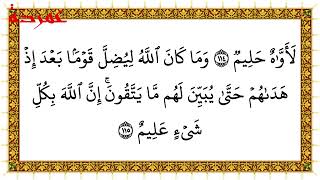 لَأَوَّٰهٌ حَلِيمٌ ١١٤ وَمَا كَانَ ٱللَّهُ لِيُضِلَّ قَوْمَۢا بَعْدَ إِذْ
هَدَىٰهُمْ حَتَّىٰ يُبَيِّنَ لَهُم مَّا يَتَّقُونَۚ إِنَّ ٱللَّهَ بِكُلِّ
شَىْءٍ عَلِيمٌ ١١٥